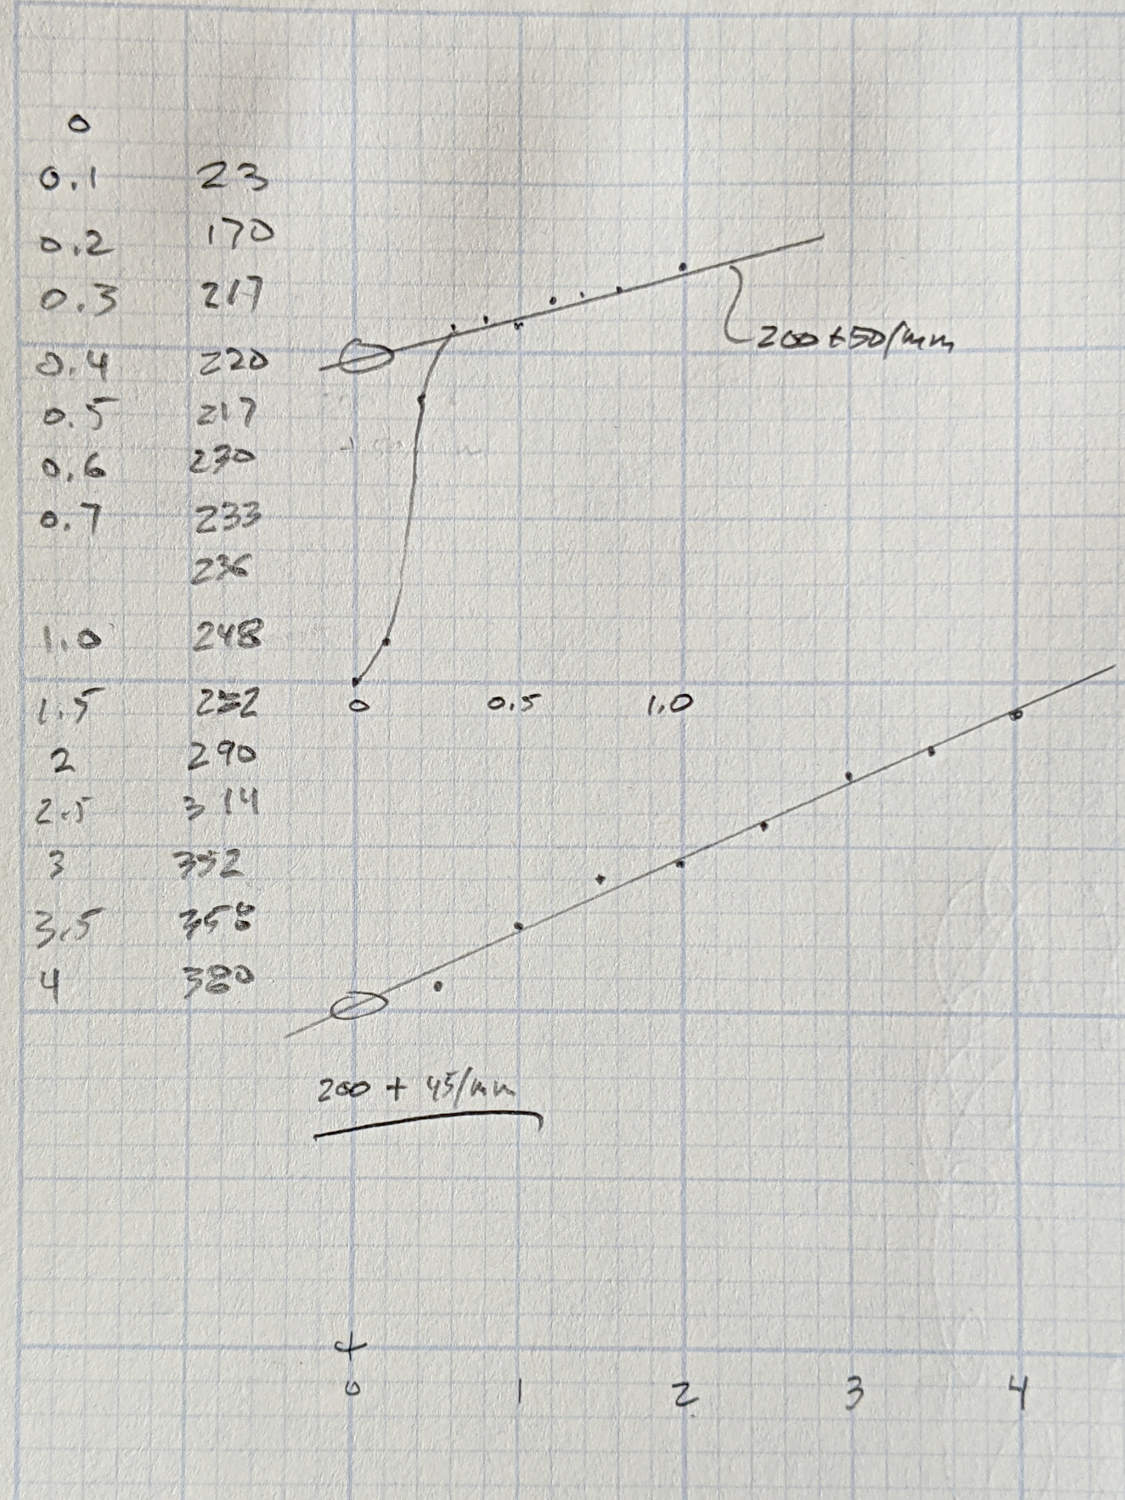 0
0.1 23
0.2 170
0.3 217
0.4 220
0.5 217
0.6 230
0.7 233
236
1.0 248
1.5
2 290
2.5 314
3
3.5 358
4 380
200+50/mm
0 0.5 1.0
200 + 45/mm
0 1 2 3 4